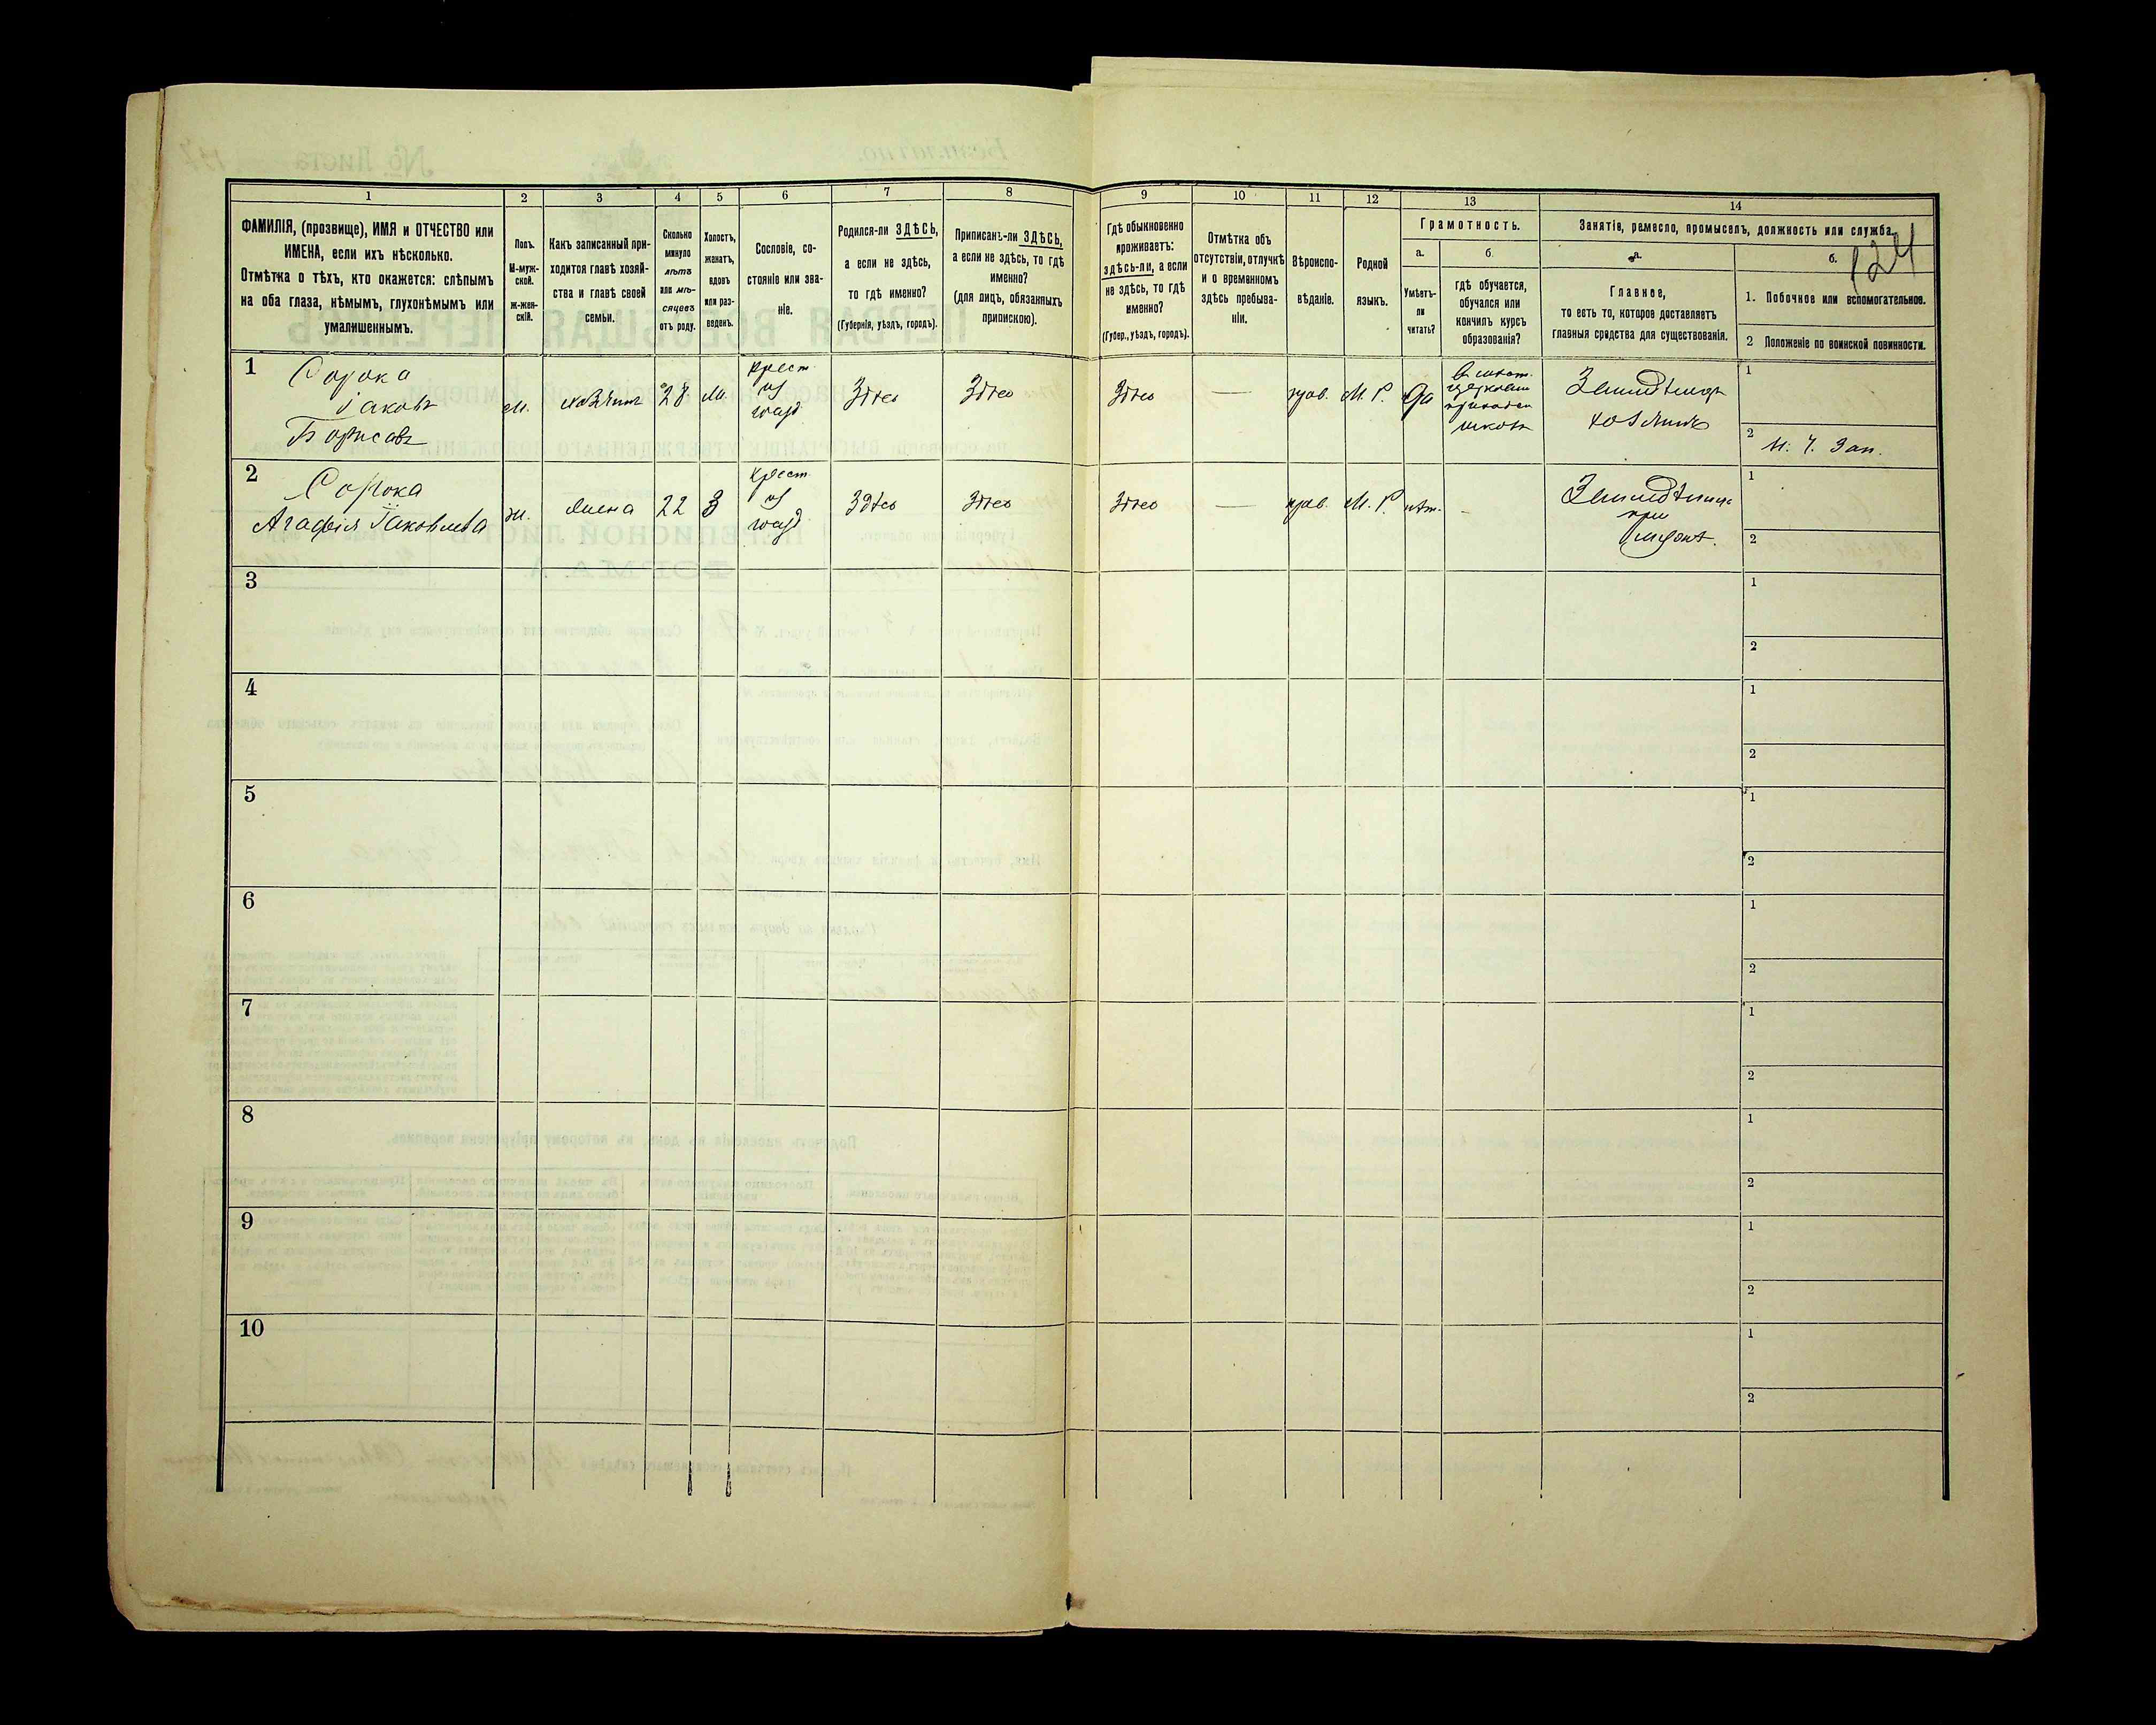 1 2 3 4 5 6 7 8 9 10 11 12 13 14
ФАМИЛІЯ, (прозвище), ИМЯ и ОТЧЕСТВО или
ИМЕНА, если ихъ нѣсколько.
Отмѣтка о тѣхъ, кто окажется: слѣпымъ
на оба глаза, нѣмымъ, глухонѣмымъ или
умалишеннымъ.
Полъ.
М-муж-
ской.
ж-жен-
скій.
Какъ записанный при-
ходится главѣ хозяй-
ства и главѣ своей
семьи.
Сколько
минуло
лѣтъ
или мѣ-
сяцевъ
отъ роду.
Холостъ,
женатъ,
вдовъ
или раз-
веденъ.
Сословіе, со-
стояніе или зва-
ніе.
Родился-ли ЗДѢСЬ,
а если не здѣсь,
то гдѣ именно?
(Губернія, уѣздъ, городъ).
Приписанъ-ли ЗДѢСЬ,
а если не здѣсь, то гдѣ
именно?
(для лицъ, обязанныхъ
припискою).
Гдѣ обыкновенно
проживаетъ:
здѣсь-ли, а если
не здѣсь, то гдѣ
именно?
(Губер., уѣздъ, городъ).
Отмѣтка объ
отсутствіи, отлучкѣ
и о временномъ
здѣсь пребыва-
ніи.
Вѣроиспо-
вѣданіе.
Родной
языкъ.
Грамотность.
а.
Умѣетъ-
ли
читать?
б.
гдѣ обучается,
обучался или
кончилъ курсъ
образованія?
Занятіе, ремесло, промыселъ, должность или служба.
а.
Главное,
то есть то, которое доставляетъ
главныя средства для существованія.
б.
124
1. Побочное или вспомогательное.
2 Положеніе по воинской повинности.
1
Сорока
Іаковъ
Борисовъ
м.
хозяинъ
28
крест.
из
Здѣсь
Здѣсь
Здѣсь
—
прав.
М. Р.
да
школѣ
хозяинъ
1
2
2
Сорока
Агафія Іаковлева
ж.
жена
22
З
крест.
из
Здѣсь
Здѣсь
Здѣсь
—
прав.
М. Р.
нѣт.
-
при
1
2
3
1
2
4
1
2
5
1
2
6
1
2
7
1
2
8
1
2
9
1
2
10
1
2